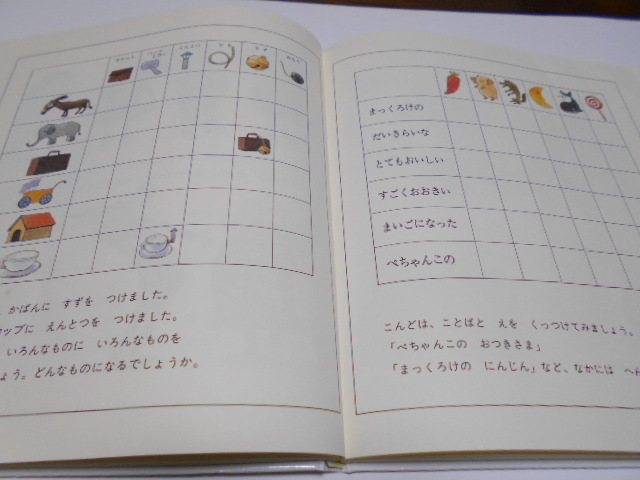 えんとつ
すず
かばんに すずを つけました。
カップに えんとつを つけました。
いろんなものに いろんなものを
しょう。どんなものになるでしょうか。
まっくろけの
だいきらいな
とてもおいしい
すごくおおきい
まいごになった
ぺちゃんこの
こんどは、ことばと えを くっつけてみましょう。
「ぺちゃんこの おつきさま」
「まっくろけの にんじん」など、なかには へん